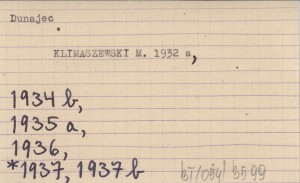 Dunajec.
KLIMASZEWSKI M. 1932 a,
1934 b,
1935 a,
1936,
*1937, 1937 b